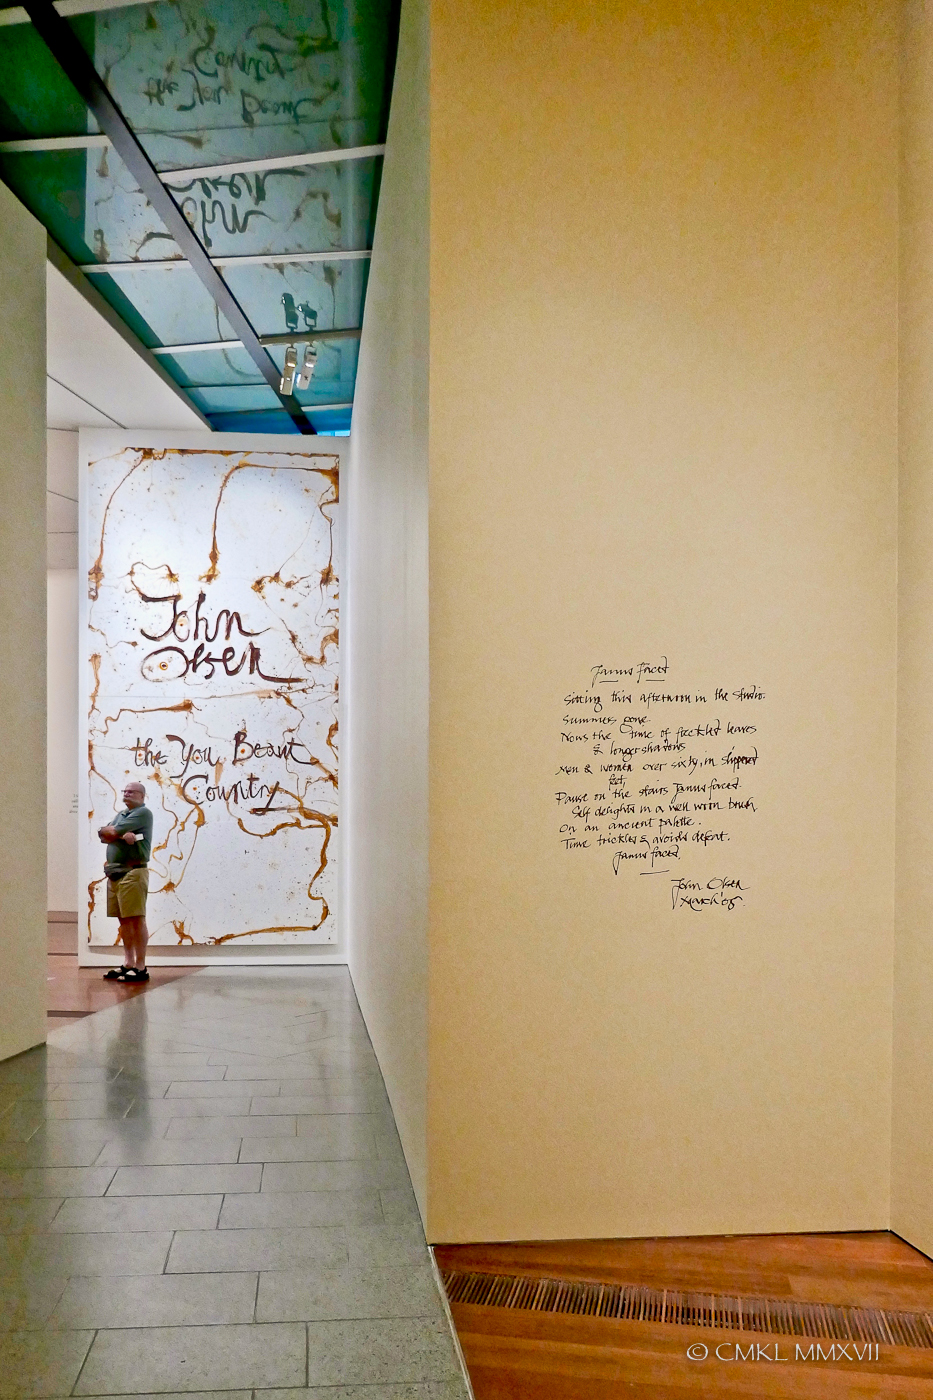 John
Olsen
the You Beaut
Country
Janus Faced
Sitting this afternoon in the studio.
Summers gone.
Nows the time of freckled leaves
& longer shadows
Men & women over sixty, in slippered
feet,
Pause on the stairs Janus faced.
Self delights in a well worn brush
On an ancient palette.
Time trickles & avoids defeat.
Janus faced.
John Olsen
March '05
© CMKL MMXVII